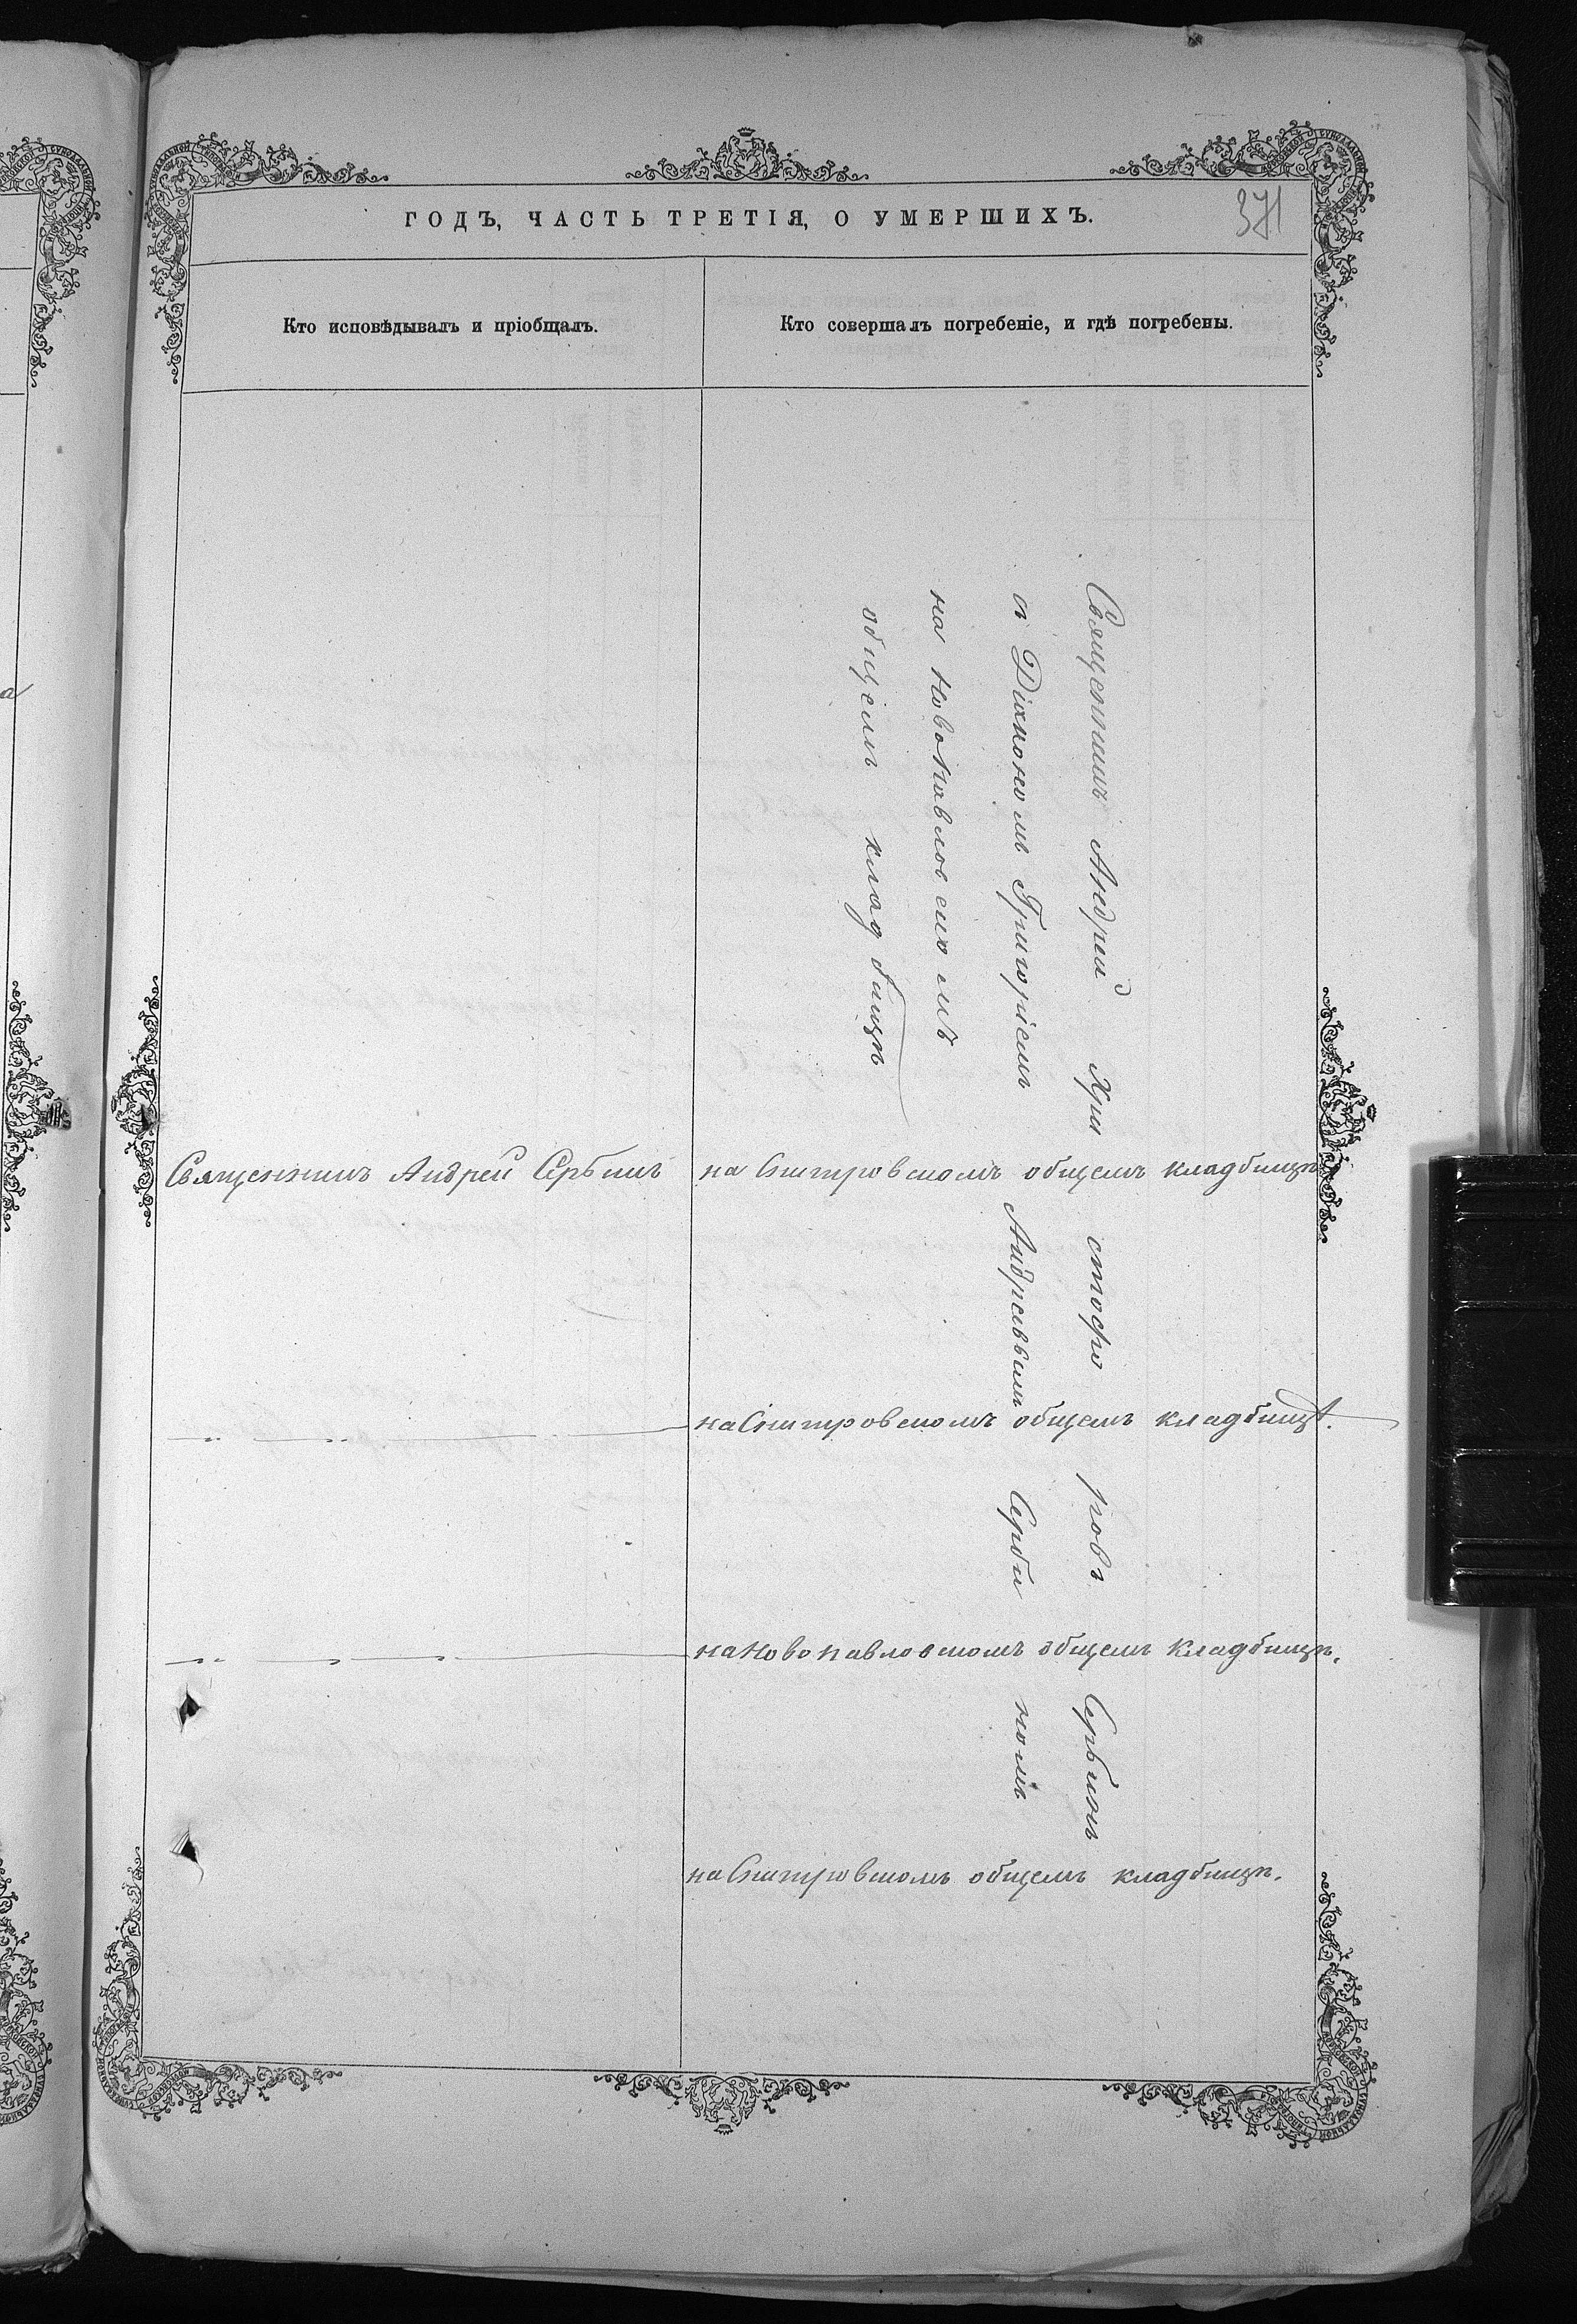 371
ГОДЪ, ЧАСТЬ ТРЕТІЯ, О УМЕРШИХЪ.
Кто исповѣдывалъ и пріобщалъ.
Кто совершалъ погребеніе, и гдѣ погребены.
Священникъ Андрей Христофоровъ Сербинъ
съ Діакономъ Григоріемъ Андреевымъ Сербиномъ
на Новопавловскомъ
общемъ кладбищѣ
Священникъ Андрей Сербинъ
на общемъ кладбищѣ
на общемъ кладбищѣ.
на Новопавловскомъ общемъ кладбищѣ.
на общемъ кладбищѣ.